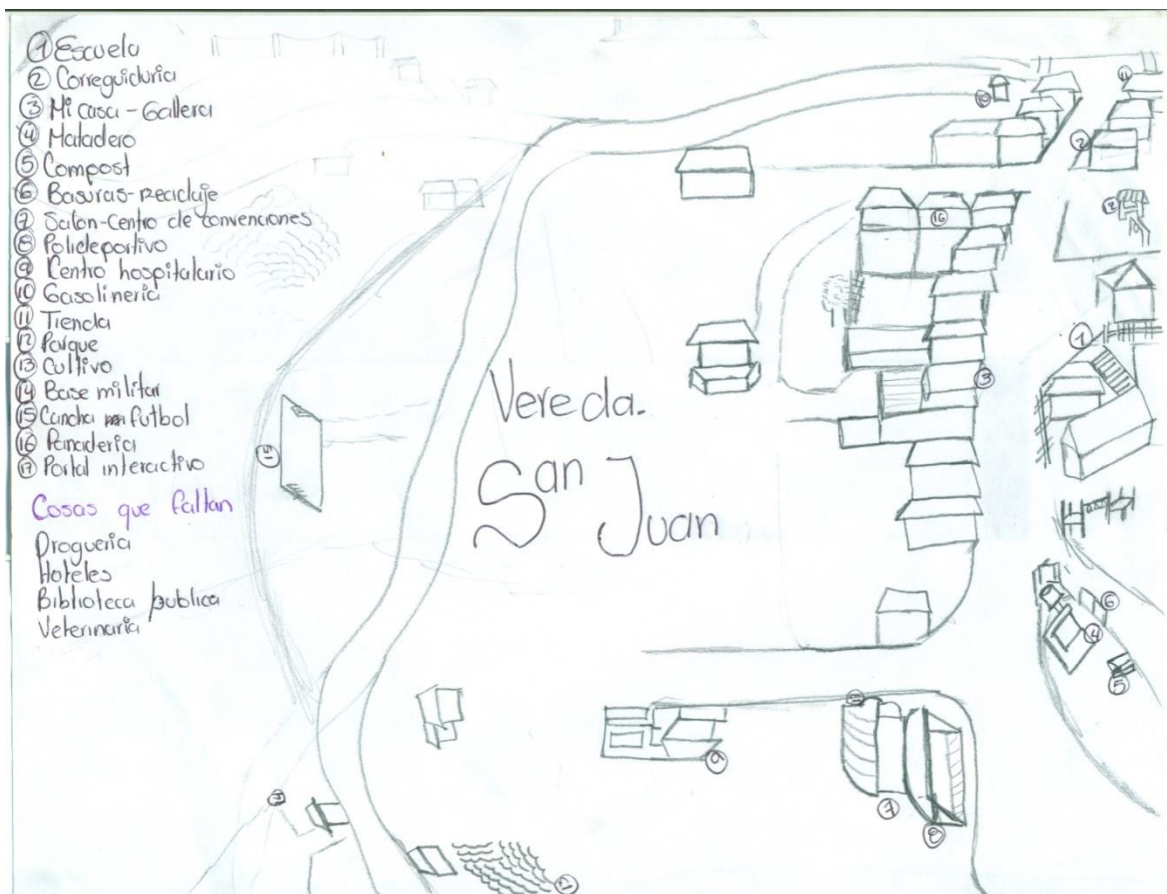 ① Escuela
② Correguiduria
③ Mi casa - Gallera
④ Matadero
⑤ Compost
⑥ Basuras-reciclaje
⑦ Salon-Centro de convenciones
⑧ Polideportivo
⑨ Centro hospitalario
⑩ Gasolineria
⑪ Tienda
⑫ Parque
⑬ Cultivo
⑭ Base militar
⑮ Cancha futbol
⑯ Panaderia
⑰ Portal interactivo
Cosas que faltan
Drogueria
Hoteles
Biblioteca publica
Veterinaria
Vereda.
San Juan
⑩
⑪
②
⑯
⑫
①
③
⑮
⑥
④
⑤
⑨
⑦
⑧